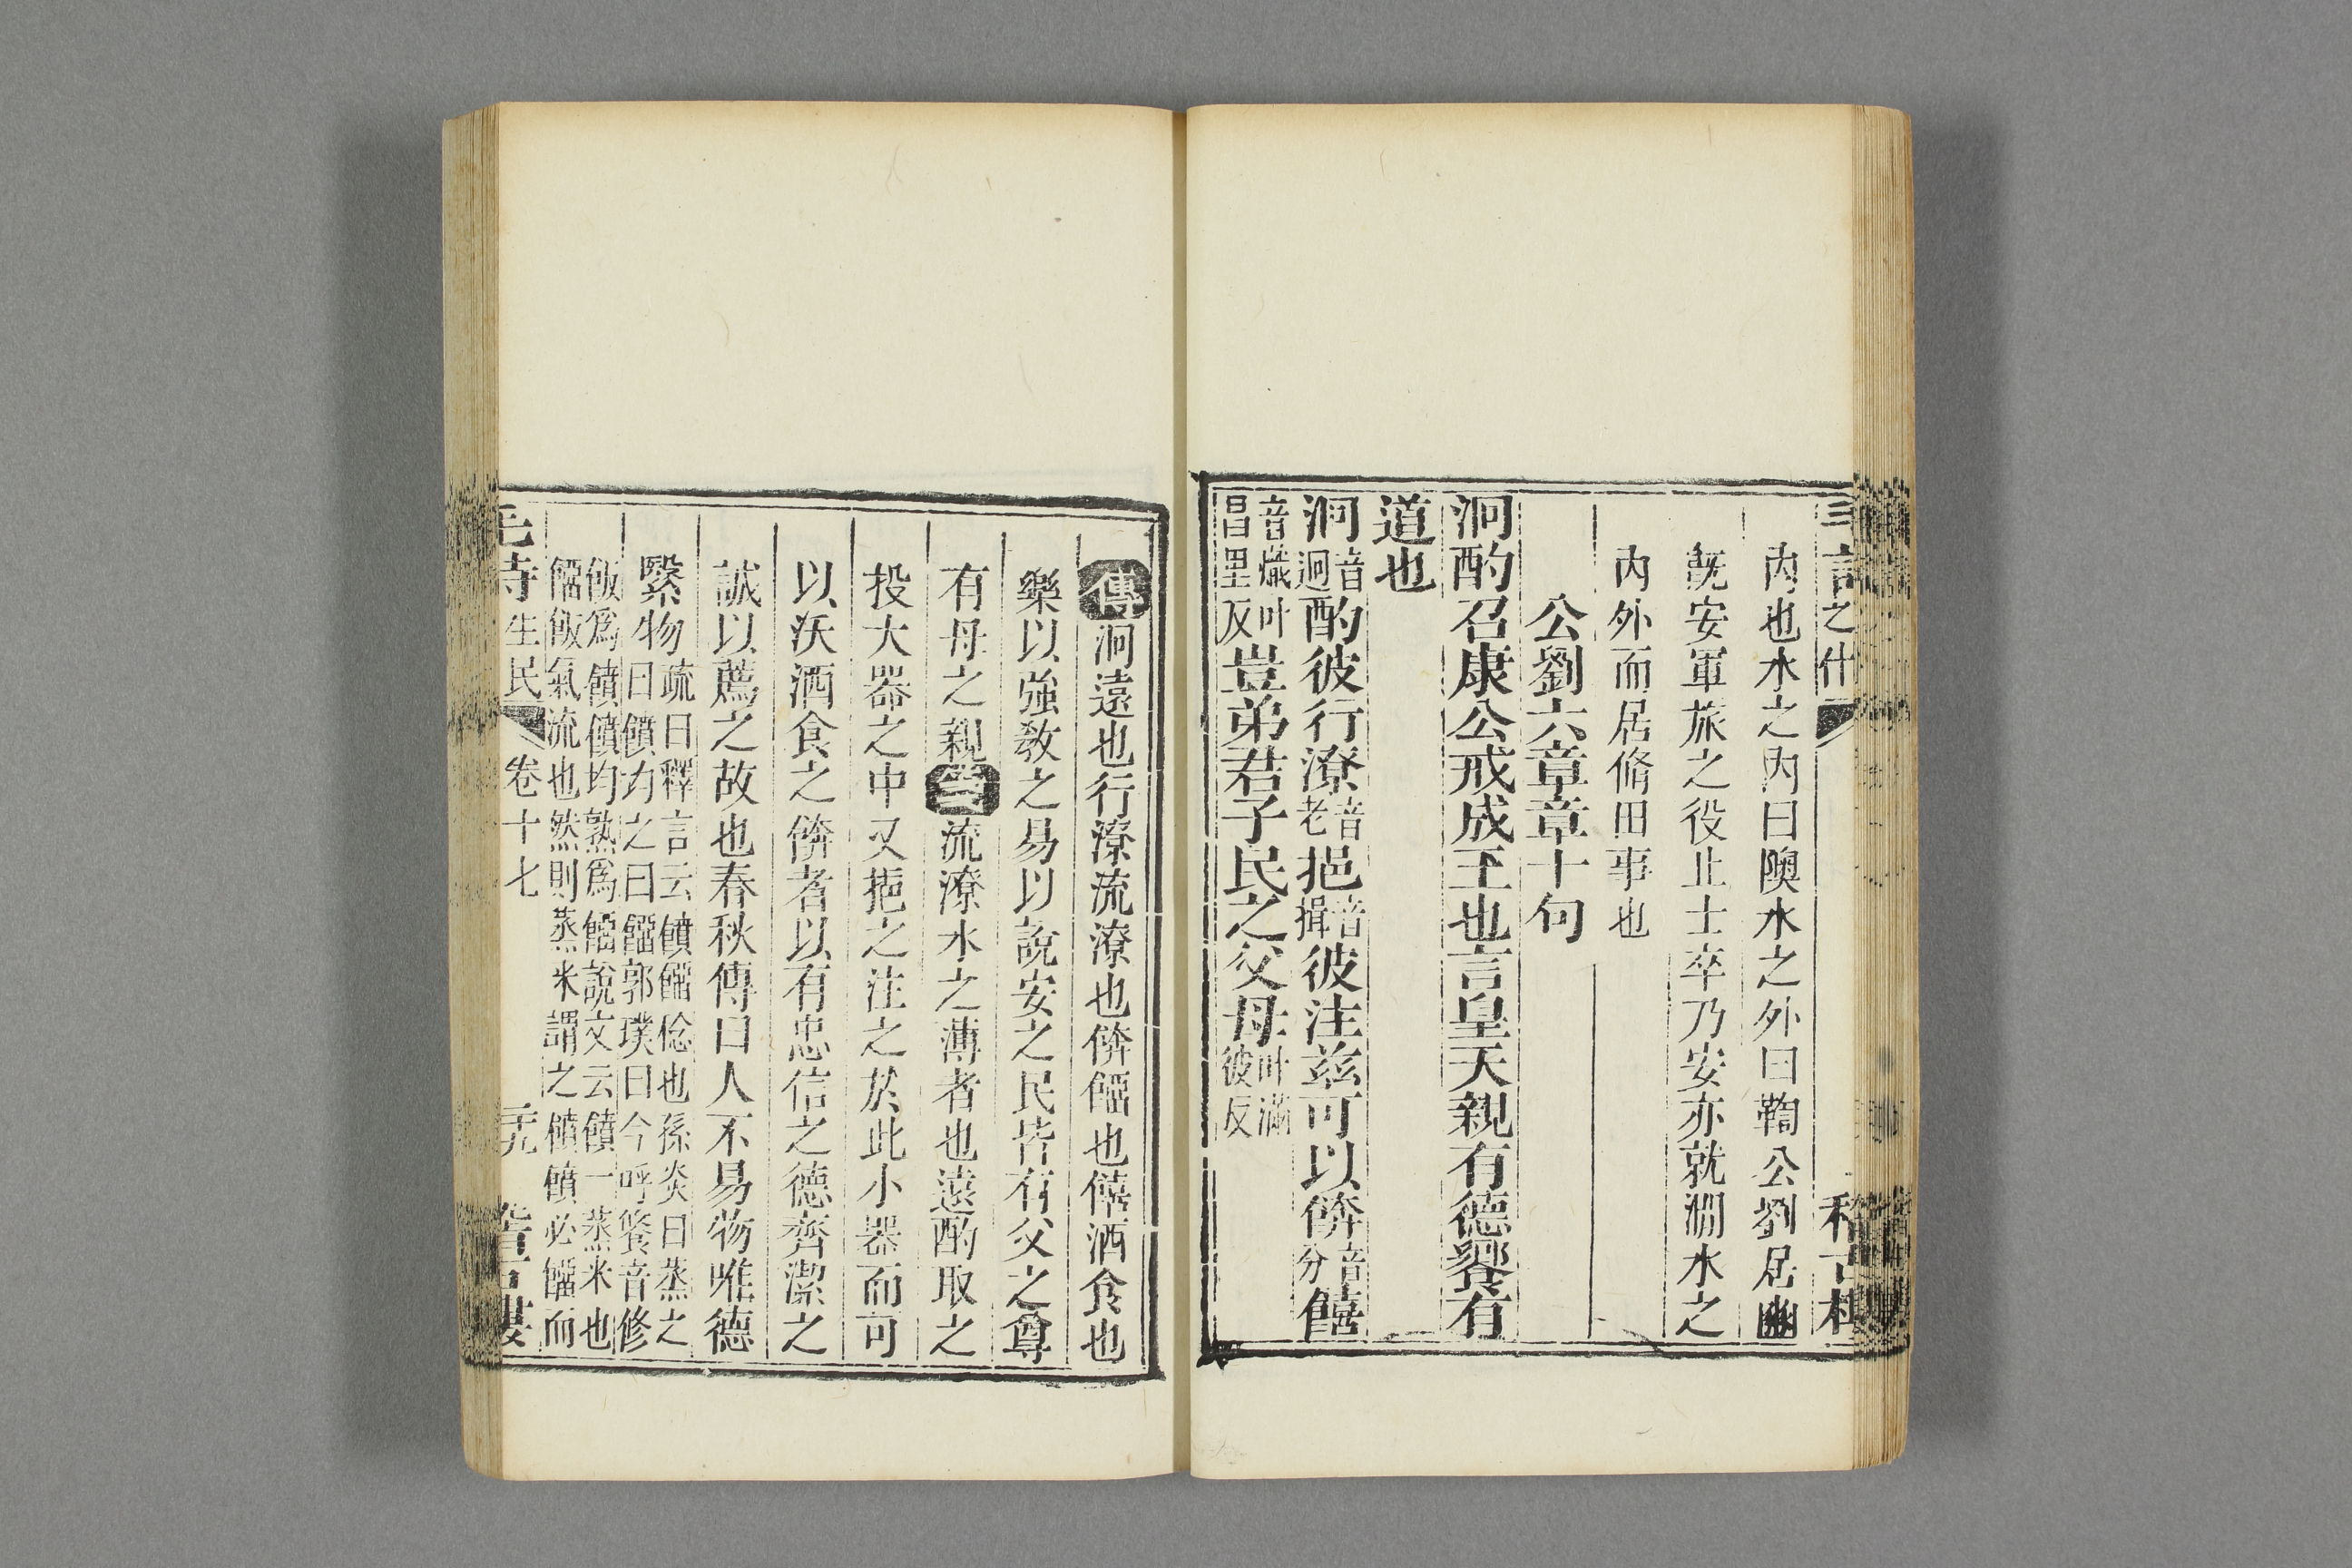 之什
内也水之内曰隩水之外曰鞫公劉居豳
旣安軍旅之役止士卒乃安亦就澗水之
内外而居脩田事也
公劉六章章十句
泂酌召康公戒成王也言皇天親有德饗有
道也
泂音迥酌彼行潦音老挹音揖彼注茲可以餴音分饎
音熾叶昌里反豈弟君子民之父母叶滿彼反
傳泂遠也行潦流潦也餴餾也饎酒食也
樂以強敎之易以說安之民皆有父之尊
有母之親箋流潦水之薄者也遠酌取之
投大器之中又挹之注之於此小器而可
以沃酒食之餴者以有忠信之德齊潔之
誠以薦之故也春秋傳曰人不易物唯德
繄物疏曰釋言云饙餾稔也孫炎曰蒸之曰饙均之曰餾郭璞曰今呼餐音修
飯爲饙饙均熟爲餾說文云饙一蒸米也餾飯氣流也然則蒸米謂之饙饙必餾而
毛詩生民 卷十七